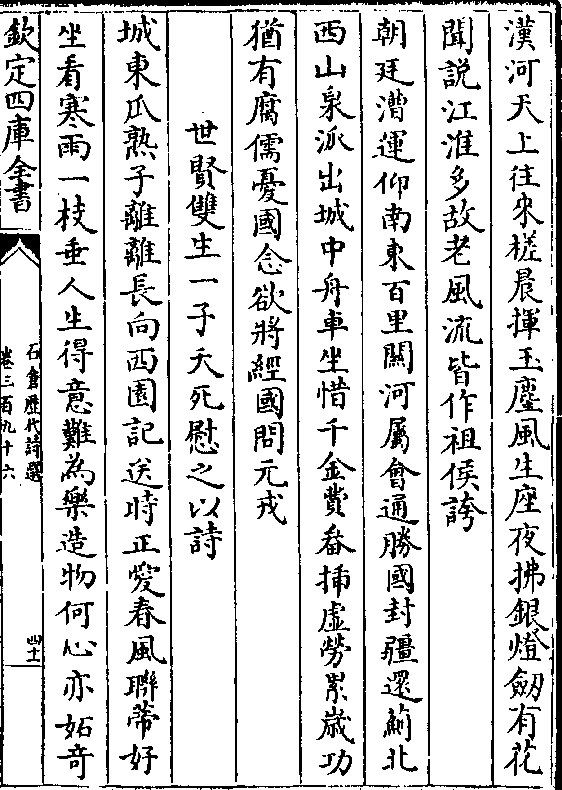 漢河天上往來槎晨揮玉麈風生座夜拂銀燈劒有花
聞説江淮多故老風流皆作祖侯誇
朝廷漕運仰南東百里關河屬會通勝國封疆還薊北
西山泉派出城中舟車坐惜千金費畚揷虛勞累歲功
猶有腐儒憂國念欲將經國問元戎
世賢雙生一子夭死慰之以詩
城東瓜熟子離離長向西園記送時正愛春風聯蒂好
坐看寒雨一枝垂人生得意難為樂造物何心亦妬奇
欽定四庫全書
石倉歷代詩選
卷三百九十六
四十